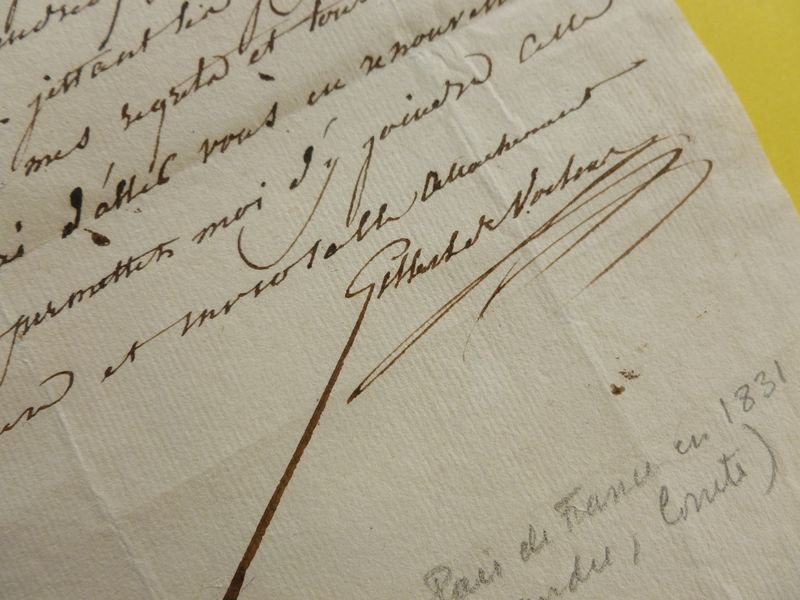 jettant la
mes regrets et tous
d'allés vous en renouvell
permettés moi d'y joindre celle
et inviolable attachement
Gilbert de Voisins
Pair de France en 1831
Comte)